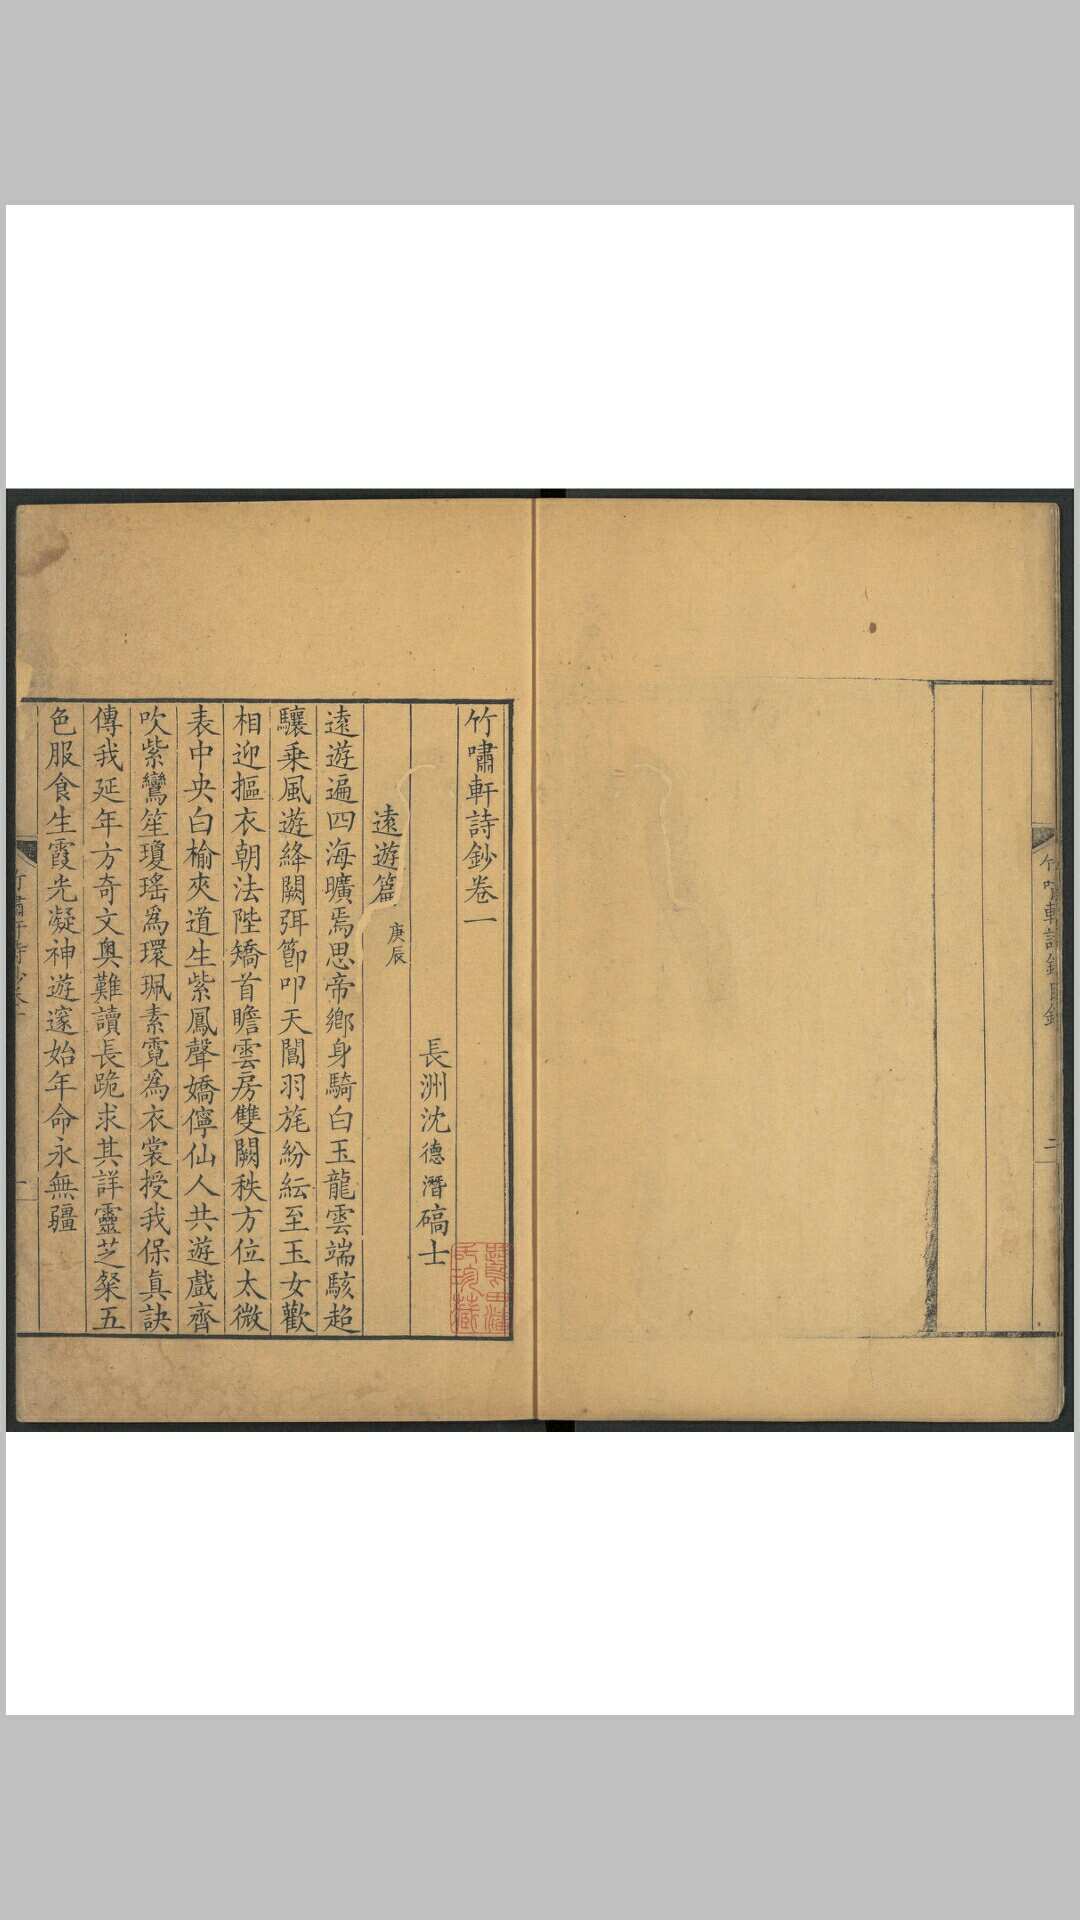 竹嘯軒詩鈔目錄
二
竹嘯軒詩鈔卷一
長洲沈德潛碻士
遠遊篇 庚辰
遠遊遍四海曠焉思帝鄉身騎白玉龍雲端駭超
驤乘風遊絳闕弭節叩天閶羽旄紛紜至玉女歡
相迎摳衣朝法陛矯首瞻雲房雙闕秩方位太微
表中央白榆夾道生紫鳳聲嬌儜仙人共遊戲齊
吹紫鸞笙瓊瑤為環珮素霓為衣裳授我保真訣
傳我延年方奇文奧難讀長跪求其詳靈芝粲五
色服食生霞光凝神遊邃始年命永無疆
竹嘯軒詩鈔卷一
一